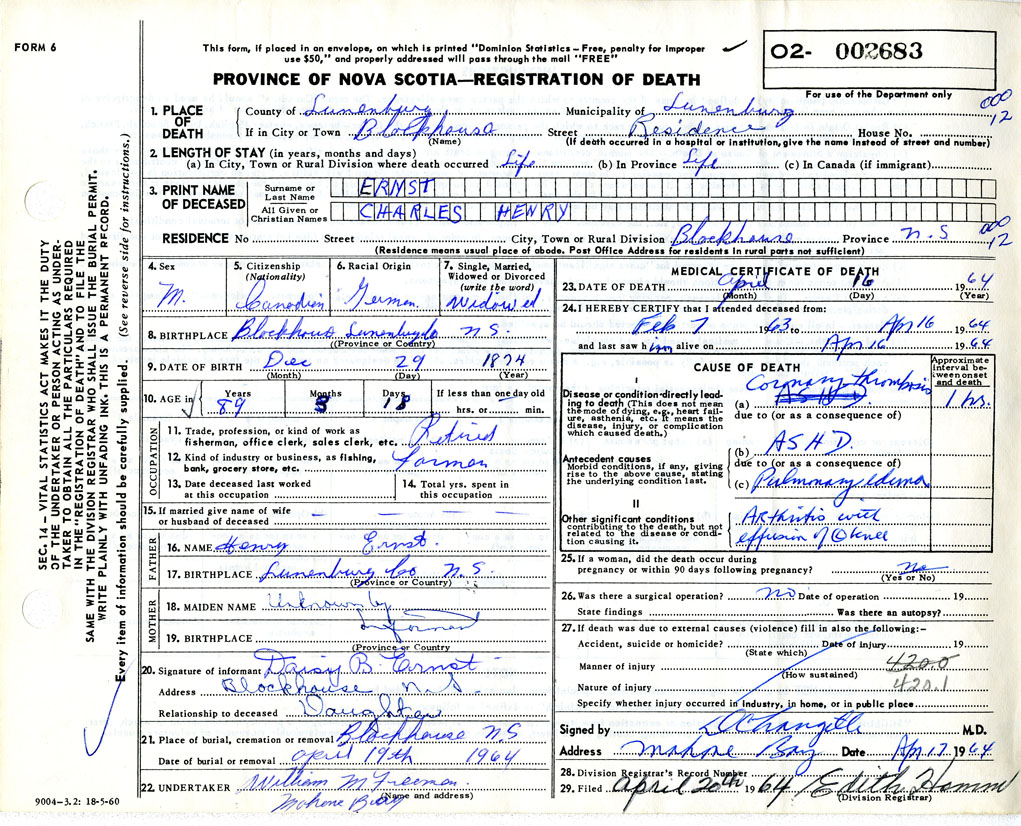 FORM 6
This form, if placed in an envelope, on which is printed "Dominion Statistics – Free, penalty for improper
use $50," and properly addressed will pass through the mail "FREE"
02- 002683
For use of the Department only
PROVINCE OF NOVA SCOTIA—REGISTRATION OF DEATH
000
12
1. PLACE OF DEATH
County of Lunenburg Municipality of Lunenburg
If in City or Town Blockhouse Street Residence House No.
(Name) (If death occurred in a hospital or institution, give the name instead of street and number)
2. LENGTH OF STAY (in years, months and days)
(a) In City, Town or Rural Division where death occurred Life (b) In Province Life (c) In Canada (if immigrant)
3. PRINT NAME OF DECEASED
Surname or Last Name ERNST
All Given or Christian Names CHARLES HENRY
000
12
RESIDENCE No Street City, Town or Rural Division Blockhouse Province N.S
(Residence means usual place of abode. Post Office Address for residents in rural parts not sufficient)
4. Sex M.
5. Citizenship (Nationality) Canadian
6. Racial Origin German
7. Single, Married, Widowed or Divorced (write the word) Widowed
8. BIRTHPLACE Blockhous Lunenburg Co N.S.
(Province or Country)
9. DATE OF BIRTH Dec 29 1874
(Month) (Day) (Year)
10. AGE in Years 89 Months 3 Days 18 If less than one day old
hrs. or min.
OCCUPATION
11. Trade, profession, or kind of work as
fisherman, office clerk, sales clerk, etc. Retired
12. Kind of industry or business, as fishing,
bank, grocery store, etc. Farmer
13. Date deceased last worked
at this occupation
14. Total yrs. spent in
this occupation
15. If married give name of wife
or husband of deceased — — —
FATHER
16. NAME Henry Ernst.
17. BIRTHPLACE Lunenburg Co N.S.
(Province or Country)
MOTHER
18. MAIDEN NAME Unknown by
Informant
19. BIRTHPLACE
(Province or Country)
20. Signature of informant Daisy B. Ernst
Address Blockhouse N.S.
Relationship to deceased Daughter
21. Place of burial, cremation or removal Blockhouse NS
Date of burial or removal April 19th 1964
22. UNDERTAKER William M Freeman
(Name and address)
Mahone Bay
9004–3.2: 18-5-60
MEDICAL CERTIFICATE OF DEATH
23. DATE OF DEATH April 16 1964
(Month) (Day) (Year)
24. I HEREBY CERTIFY that I attended deceased from:
Feb 7 1963 Ap 16 1964
and last saw him alive on Ap 16 1964
CAUSE OF DEATH
Approximate interval between onset and death
I
Disease or condition directly leading to death (This does not mean the mode of dying, e.g., heart failure, asthenia, etc. It means the disease, injury, or complication which caused death.)
(a) Coronary thrombosis 1 hrs.
due to (or as a consequence of)
Antecedent causes
Morbid conditions, if any, giving rise to the above cause, stating the underlying condition last.
(b) ASHD.
due to (or as a consequence of)
(c) Pulmonary edema
II
Other significant conditions
contributing to the death, but not related to the disease or condition causing it.
Arthritis with
effusion of knee
25. If a woman, did the death occur during
pregnancy or within 90 days following pregnancy? no
(Yes or No)
26. Was there a surgical operation? no Date of operation 19
State findings Was there an autopsy?
27. If death was due to external causes (violence) fill in also the following:–
Accident, suicide or homicide? Date of injury 19
(State which)
Manner of injury 4200
(How sustained)
Nature of injury 420.1
Specify whether injury occurred in industry, in home, or in public place
Signed by M.D.
Address Mahone Bay Date Ap 17 1964
28. Division Registrar's Record Number
29. Filed April 20th 1964 Edith
(Division Registrar)
SEC. 14– VITAL STATISTICS ACT MAKES IT THE DUTY
OF THE UNDERTAKER OR PERSON ACTING AS UNDER-
TAKER TO OBTAIN ALL THE PARTICULARS REQUIRED
IN THE "REGISTRATION OF DEATH" AND TO FILE THE
SAME WITH THE DIVISION REGISTRAR WHO SHALL ISSUE THE BURIAL PERMIT.
WRITE PLAINLY WITH UNFADING INK. THIS IS A PERMANENT RECORD.
Every item of information should be carefully supplied. (See reverse side for instructions.)